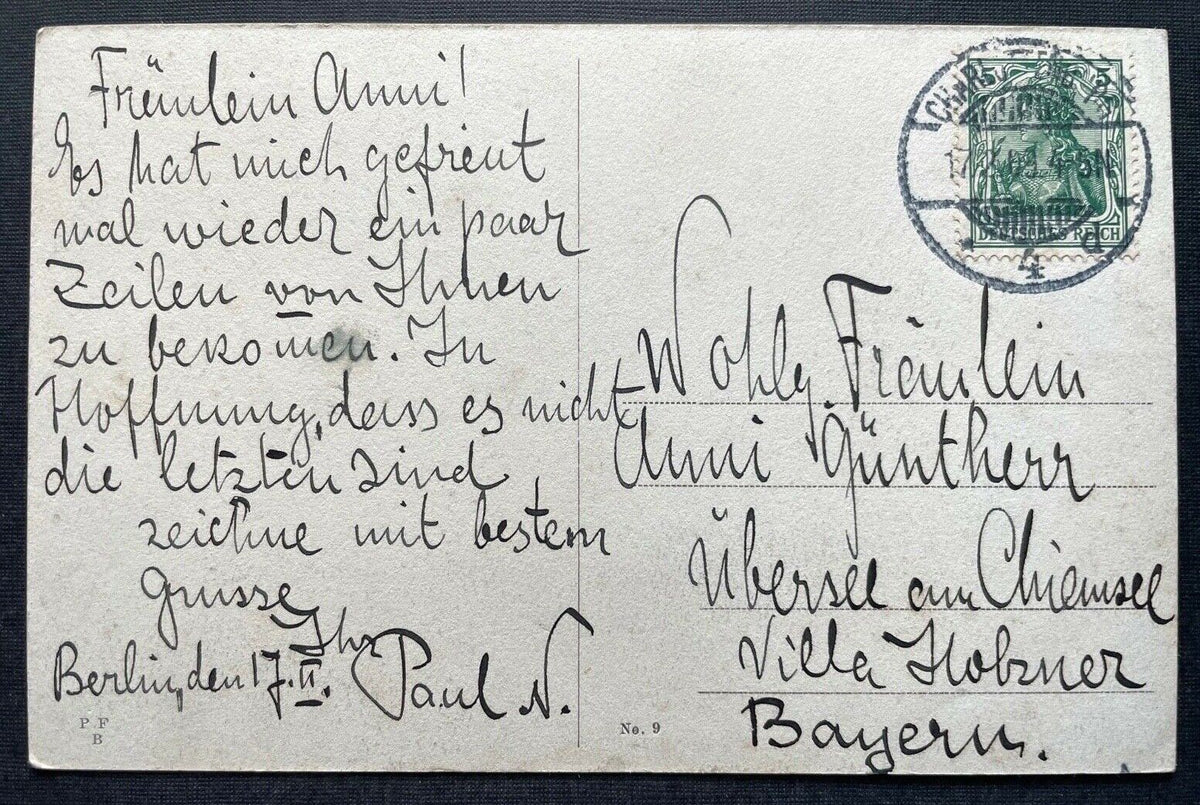 Fräulein Anni!
Es hat mich gefreut
mal wieder ein paar
Zeilen von Ihnen
zu bekomen. In
Hoffnung, dass es nicht
die letzten sind
zeichne mit bestem
Grusse
Ihr
Berlin, den 17.II. Paul N.
P F
B
No. 9
5 5
DEUTSCHES REICH
4 d
Wohlg. Fräulein
Anni Güntherr
Übersee am Chiemsee
Villa Hobzner
Bayern.